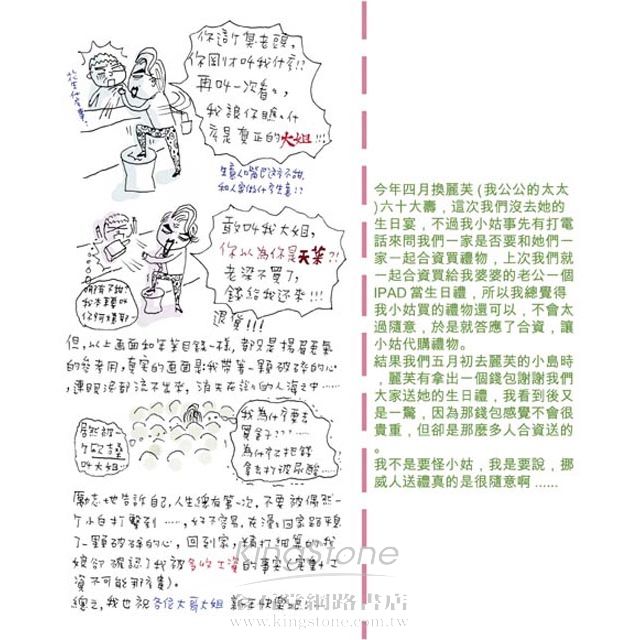 你這個臭老頭,
你剛才叫我什麼!?
再叫一次看看,
我讓你瞧瞧什
麼是真正的大姐!!!
生意人嘴巴這麼不甜,
和人家做什麼生意!?
敢叫我大姐,
你以為你是天菜?!
老梁不買了,
錢給我還來!!!
退貨!!!
但,以上畫面和笨笑目錄一樣,都只是揚眉吐氣
的參考用,真實的畫面是:我帶著一顆破碎的心,
連眼淚都流不出來,消失在茫茫的人海之中……
我為什麼要去
買拿子???……
為什麼不把錢
拿去打玻尿酸……
居然被
叫大姐…
勵志地告訴自己,人生總有第一次,不要被偶然一
個小白打擊到……,好不容易,在漫漫回家路平穩
了一顆破碎的心,回到家,精打細算的我
娘卻確認了我被多收工資的事實(定價+工
資不可能那麼貴)。
總之,我也祝各位大哥大姐新年快樂吧…
kingstone
金石堂網路書店
www.kingstone.com.tw
今年四月換麗芙 (我公公的太太
)六十大壽,這次我們沒去她的
生日宴,不過我小姑事先有打電
話來問我們一家是否要和她們一
家一起合資買禮物,上次我們就
一起合資買給我婆婆的老公一個
IPAD 當生日禮,所以我總覺得
我小姑買的禮物還可以,不會太
過隨意,於是就答應了合資,讓
小姑代購禮物。
結果我們五月初去麗芙的小島時
,麗芙有拿出一個錢包謝謝我們
大家送她的生日禮,我看到後又
是一驚,因為那錢包感覺不會很
貴重,但卻是那麼多人合資送的
。
我不是要怪小姑,我是要說,挪
威人送禮真的是很隨意啊 ......